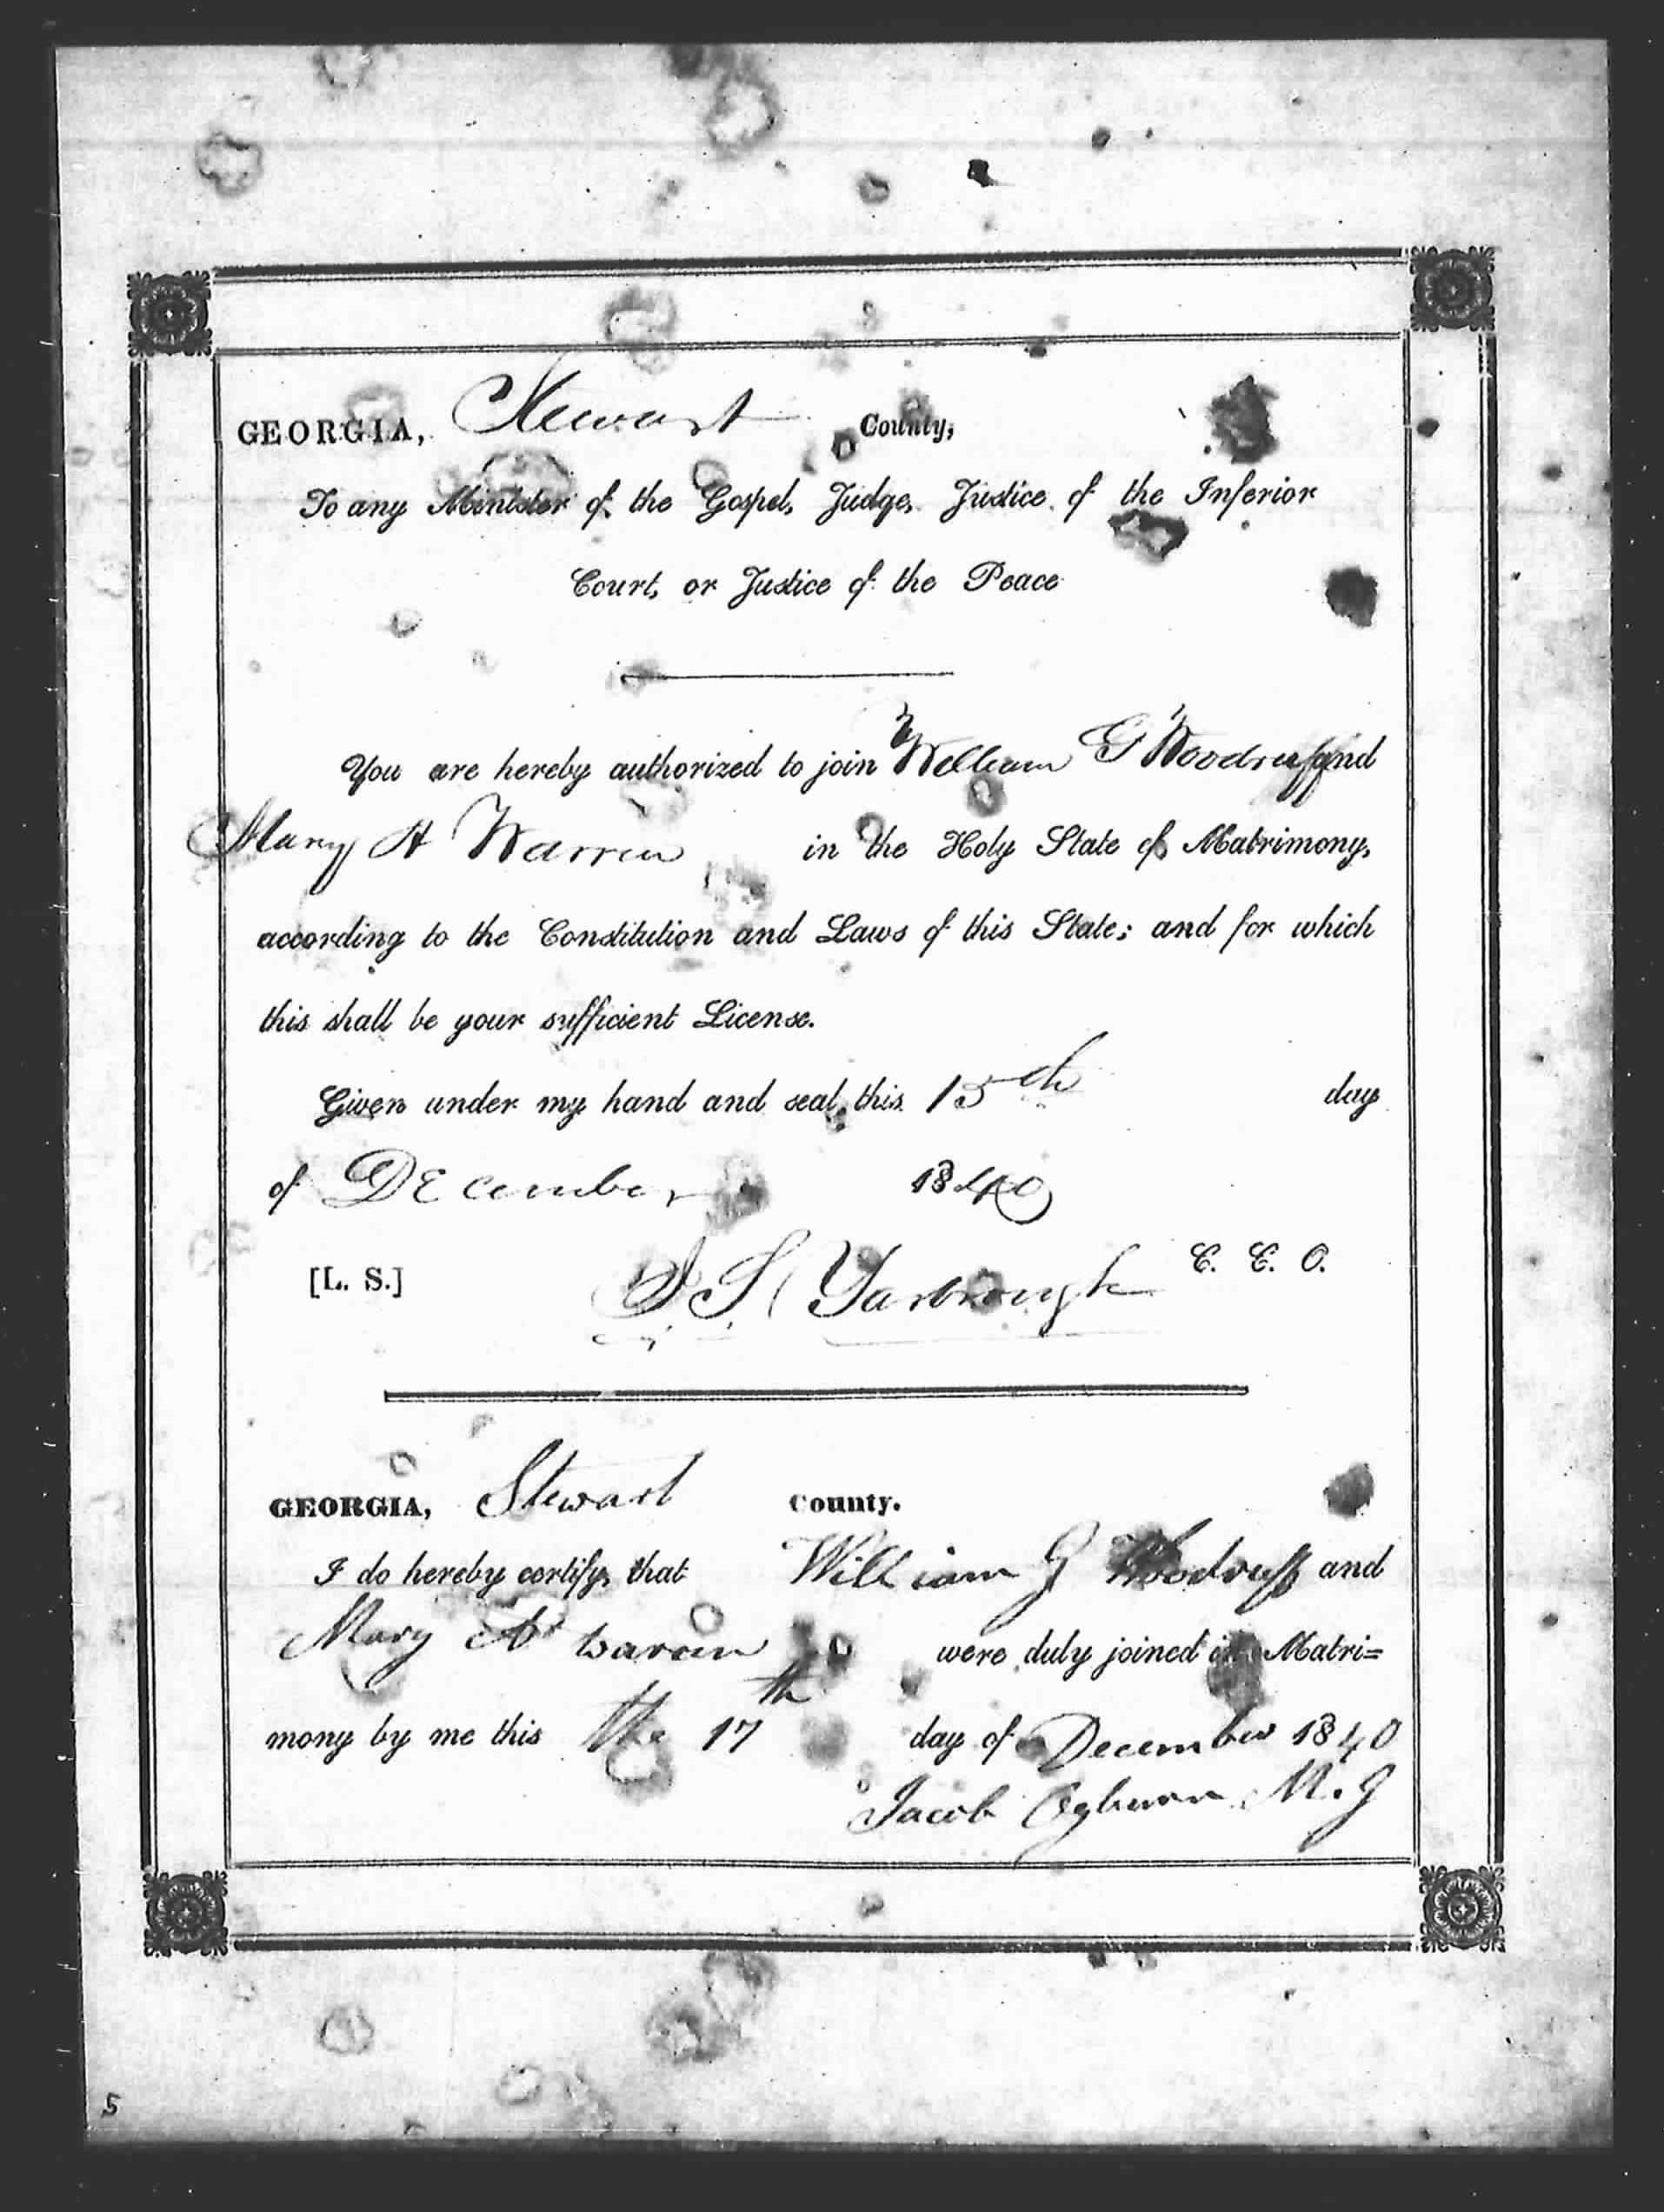 GEORGIA, Stewart County,
To any Minister of the Gospel, Judge, Justice of the Inferior
Court, or Justice of the Peace
You are hereby authorized to join William G Woodruff and
Mary A Warren in the Holy State of Matrimony,
according to the Constitution and Laws of this State; and for which
this shall be your sufficient License.
Given under my hand and seal, this 15th day
of December 1840
[L. S.] Yarbrough C. C. O.
GEORGIA, Stewart County.
I do hereby certify, that William G Woodruff and
Mary A warren were duly joined in Matri=
mony by me this the 17th day of December 1840
Jacob Ogburn M. J
5